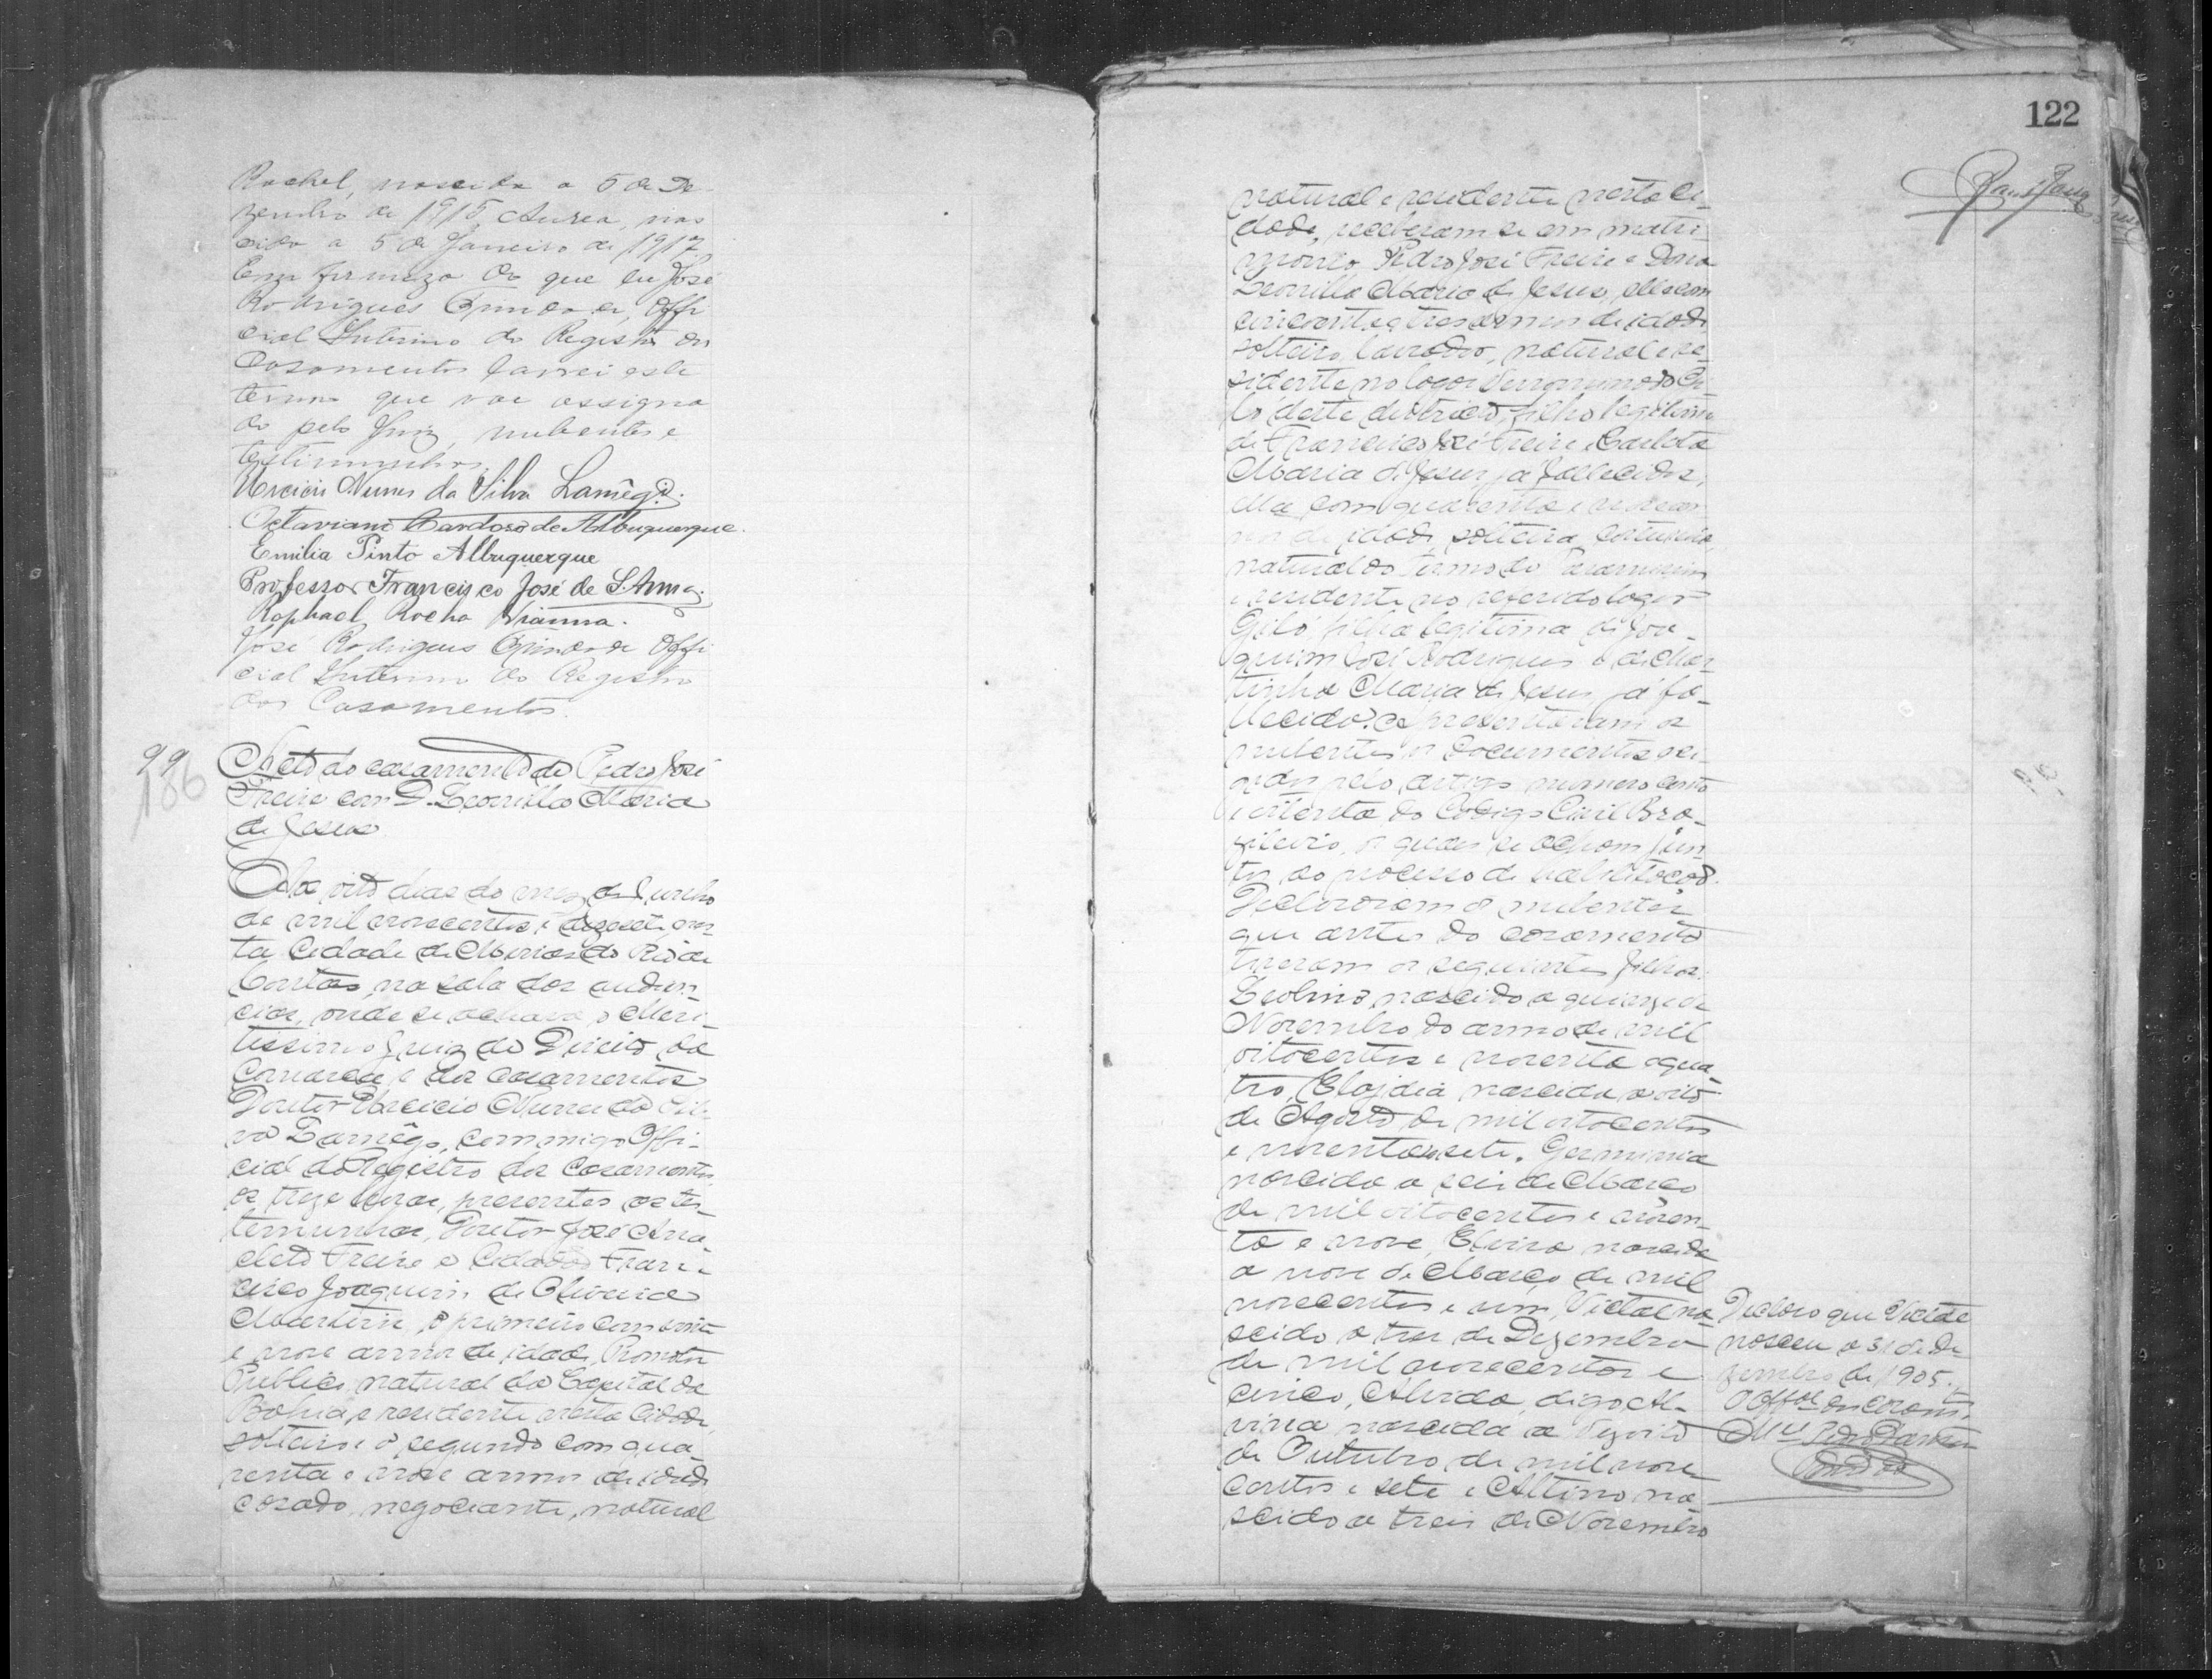 Rachel, nascida a 5 de De
zembro de 1915, Aurea, nas
cida a 5 de Janeiro de 1917.
Em firmeza do que eu José
Rodrigues Trindade, Offi
cial Interino do Registro dos
Casamentos lavrei este
termo que vae assigna
do pelo Juiz, nubentes e
testimunhas.
Urcicio Nunes da Silva Lamêgo.
Octaviano Cardoso de Albuquerque.
Emilia Pinto Albuquerque
Professor Francisco José de S. Anna.
Raphael Rocha Vianna.
José Rodrigues Trindade Offi
cial Interino do Registro
dos Casamentos.
99
186
Acto do casamento de Pedro José
Freire com D. Leonilla Maria
de Jesus
Aos oito dias do mez de Junho
de mil novecentos e dezesete nes
ta Cidade de Minas do Rio de
Contas, na sala das audien
cias, onde se achava o Meri
tissimo Juiz de Direito da
Comarca e dos casamentos
Doutor Urcicio Nunes da Sil
va Lamêgo, commigo Offi
cial do Registro dos Casamentos,
as treze horas, presentes as tes
temunhas, Doutor José Ana
cleto Freire e Cidadão Fran
cisco Joaquim de Oliveira
o primeiro com vinte
e nove annos de idade, Promotor
Publico, natural da Capital da
Bahia, e residente nesta Cidade,
solteiro e o segundo com qua
renta e nove annos de idade
casado, negociante, natural
122
natural e residente nesta Ci
dade, receberam se em matri
monio Pedro José Freire e Dona
Leonilla Maria de Jesus, elle com
cincoenta e tres annos de idade
solteiro, lavrador, natural e re
sidente no logar
deste districto, filho legitimo
de Francisco José Freire e Carlota
Maria de Jesus, já fallecidos,
ella com quarenta e nove an
nos de idade, solteira, costureira,
natural do termo de
e residente no referido logar
Giló filha legitima de Joa
quim José Rodrigues e de Mar
tinha Maria de Jesus já fa
llecidos. Apresentaram os
nubentes os documentos exi
gidos pelo artigo numero cento
e oitenta do Codigo Civil Bra
zileiro, os quaes se acham jun
tos ao processo de habilitação.
Declararam os nubentes
que antes do casamento
tiveram os seguintes filhos:
Leolino, nascido a quinze de
Novembro do anno de mil
oitocentos e noventa e qua
tro, Elozdia nascida a oito
de Agosto de mil oitocentos
e noventa e sete, Germinia
nascida a seis de Março
de mil oitocentos e noven
ta e nove, Elvira nascida
a nove de Março de mil
novecentos e um, Vidal na
scido a tres de Dezembro
de mil novecentos e
cinco, Alvida, digo, Al
vina nascida a dezoito
de Outubro de mil nove
centos e sete e Altino na
scido a treis de Novembro
Declaro que Vidal
nasceu a 31 de De
zembro de 1905.
O Offal dos Casamtos